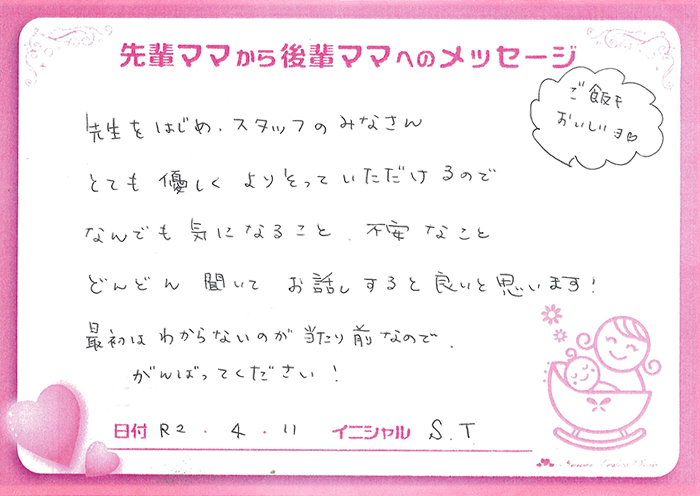 先輩ママから後輩ママへのメッセージ
ご飯も
おいしいヨ♡
先生をはじめ、スタッフのみなさん
とても優しくよりそっていただけるので
なんでも気になること、不安なこと
どんどん聞いてお話しすると良いと思います!
最初はわからないのが当たり前なので、
がんばってください!
日付 R2.4.11 イニシャル S.T